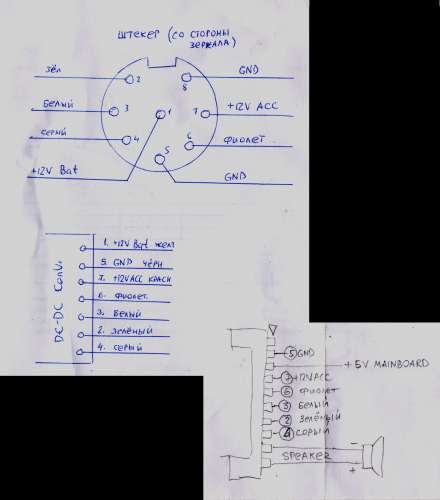 ШТЕКЕР (СО СТОРОНЫ
ЗЕРКАЛА)
ЗЕЛ
2
8
GND
БЕЛЫЙ
3
1
7
+12V ACC
СЕРЫЙ
4
6
ФИОЛЕТ
+12V Bat
5
GND
DC-DC Conv.
1. +12V Bat ЖЕЛТ
5. GND ЧЁРН
7. +12V ACC КРАСН
6. ФИОЛЕТ.
3. БЕЛЫЙ
2. ЗЕЛЁНЫЙ
4. СЕРЫЙ
5 GND
+5V MAINBOARD
7 +12V ACC
6 ФИОЛЕТ
3 БЕЛЫЙ
2 ЗЕЛЁНЫЙ
4 СЕРЫЙ
SPEAKER
-
+